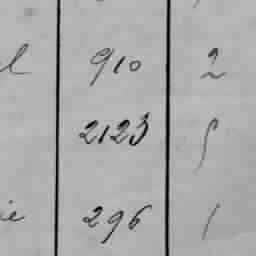 l 910 2
2123 5
ie 296 1